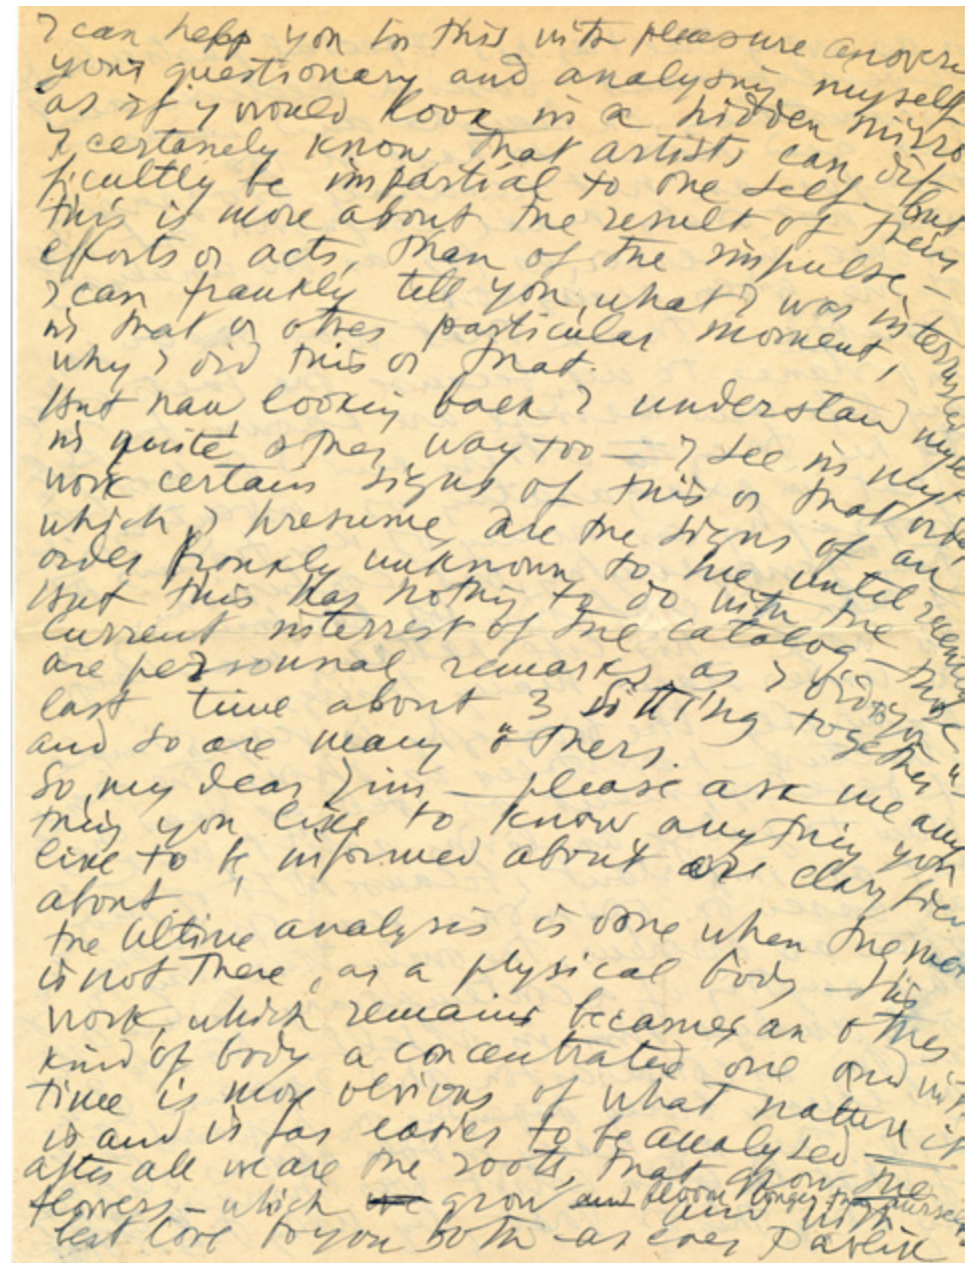 I can help you in this with pleasure answeri
your questionary and analysing myself
as if I would look in a hidden mirro
I certanely know that artists can dif
ficultly be impartial to one self – but
this is more about the result of their
efforts or acts, than of the impulse. –
I can frankly tell you what I was
in that or other particular moment,
why I did this or that.
But naw looking back I understand myse
in quite other way too — I see in my
work certain signs of this or that orde
which, I presume, are the signs of an
order frankly unknown to me until recently
But this has nothing to do with the
current interrest of the catalog – those
are personnal remarks, as I did to you
last time about "3 sitting together"
and so are many others.
So, my dear Jim — please ask me any
thing you like to know, anything you
like to be informed about or
about.
the ultime analysis is done when the men
is not there, as a physical body – his
work, which remains becames an other
kind of body a concentrated one and with
time is more obvious of what nature it
is and is far easier to be analysed —
after all we are the roots, that grow the
flowers – which grow and bloom longer than ourselves
and with
best love to you both – as ever Pavlik